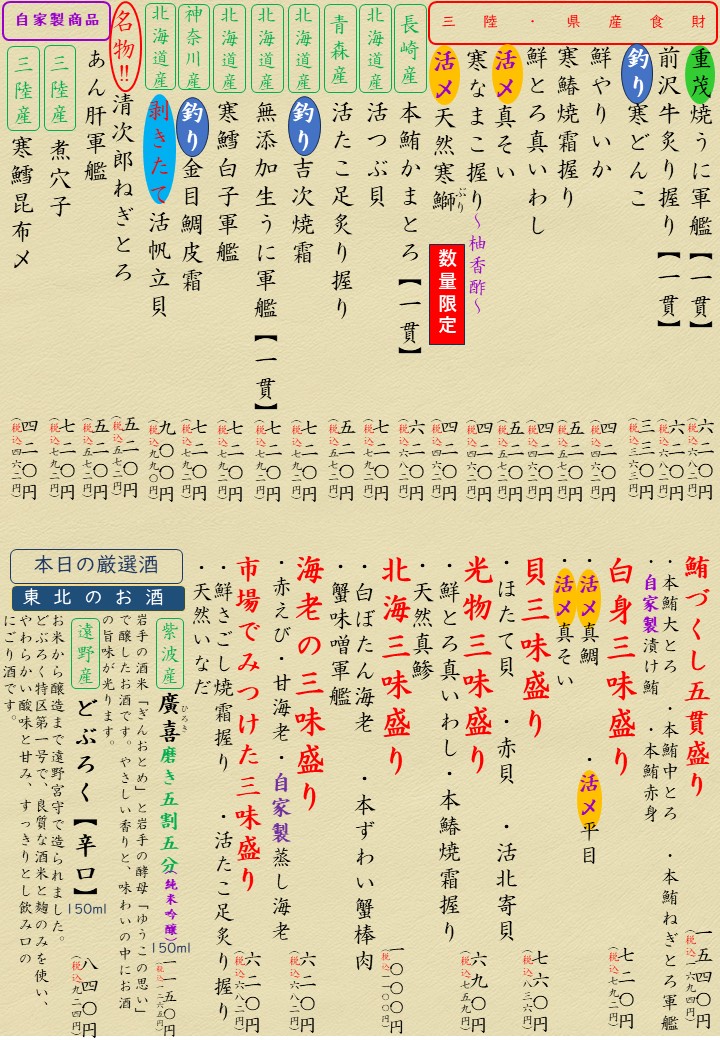 三陸・県産食財
重茂焼うに軍艦【一貫】 六二〇円(税込六八二円)
前沢牛炙り握り【一貫】 六二〇円(税込六八二円)
釣り寒どんこ 三三〇円(税込三六三円)
鮮やりいか 四二〇円(税込四六二円)
寒鰆焼霜握り 五二〇円(税込五七二円)
鮮とろ真いわし 四二〇円(税込四六二円)
活〆真そい 五二〇円(税込五七二円)
寒なまこ握り~柚香酢~ 四二〇円(税込四六二円)
活〆天然寒鰤 数量限定 四二〇円(税込四六二円)
ぶり
長崎産 本鮪かまとろ【一貫】 六二〇円(税込六八二円)
北海道産 活つぶ貝 七二〇円(税込七九二円)
青森産 活たこ足炙り握り 五二〇円(税込五七二円)
北海道産 釣り吉次焼霜 七二〇円(税込七九二円)
北海道産 無添加生うに軍艦【一貫】 七二〇円(税込七九二円)
北海道産 寒鱈白子軍艦 七二〇円(税込七九二円)
神奈川産 釣り金目鯛皮霜 七二〇円(税込七九二円)
北海道産 剥きたて活帆立貝 九〇〇円(税込九九〇円)
名物!!清次郎ねぎとろ 五二〇円(税込五七二円)
自家製商品
あん肝軍艦 五二〇円(税込五七二円)
三陸産 煮穴子 七二〇円(税込七九二円)
三陸産 寒鱈昆布〆 四二〇円(税込四六二円)
鮪づくし五貫盛り 一五四〇円(税込一六九四円)
・本鮪大とろ ・本鮪中とろ ・本鮪ねぎとろ軍艦
・自家製漬け鮪 ・本鮪赤身
白身三味盛り 七二〇円(税込七九二円)
・活〆真鯛 ・活〆平目
・活〆真そい
貝三味盛り 七六〇円(税込八三六円)
・ほたて貝 ・赤貝 ・活北寄貝
光物三味盛り 六九〇円(税込七五九円)
・鮮とろ真いわし・本鰆焼霜握り
・天然真鯵
北海三味盛り 一〇〇〇円(税込一一〇〇円)
・白ぼたん海老 ・本ずわい蟹棒肉
・蟹味噌軍艦
海老の三味盛り 六二〇円(税込六八二円)
・赤えび・甘海老・自家製蒸し海老
市場でみつけた三味盛り 六二〇円(税込六八二円)
・鮮さごし焼霜握り ・活たこ足炙り握り
・天然いなだ
本日の厳選酒
東北のお酒
紫波産 廣喜磨き五割五分(純米吟醸)150ml 一一五〇円(税込一二六五円)
ひろき
岩手の酒米「ぎんおとめ」と岩手の酵母「ゆうこの思い」
で醸したお酒です。やさしい香りと、味わいの中にお酒
の旨味が光ります。
遠野産 どぶろく【辛口】150ml 八四〇円(税込九二四円)
お米から醸造まで遠野宮守で造られました。
どぶろく特区第一号で、良質な酒米と麹のみを使い、
やわらかい酸味と甘み、すっきりとし飲み口の
にごり酒です。